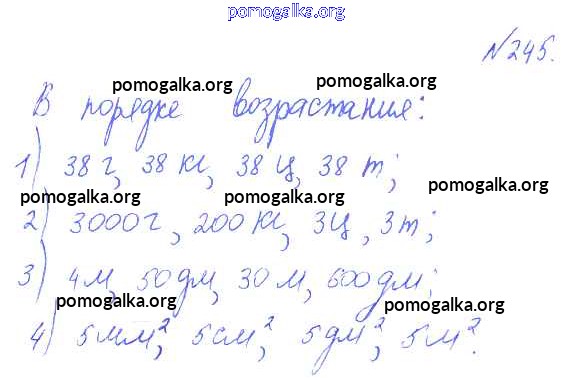 pomogalka.org
№245.
pomogalka.org pomogalka.org
В порядке возрастания:
pomogalka.org
1) 38 г, 38 кг, 38 ц, 38 т;
pomogalka.org
pomogalka.org pomogalka.org
2) 3000 г, 200 кг, 3 ц, 3 т;
3) 4 м, 50 дм, 30 м, 600 дм;
pomogalka.org pomogalka.org
4) 5 мм², 5 см², 5 дм², 5 м².